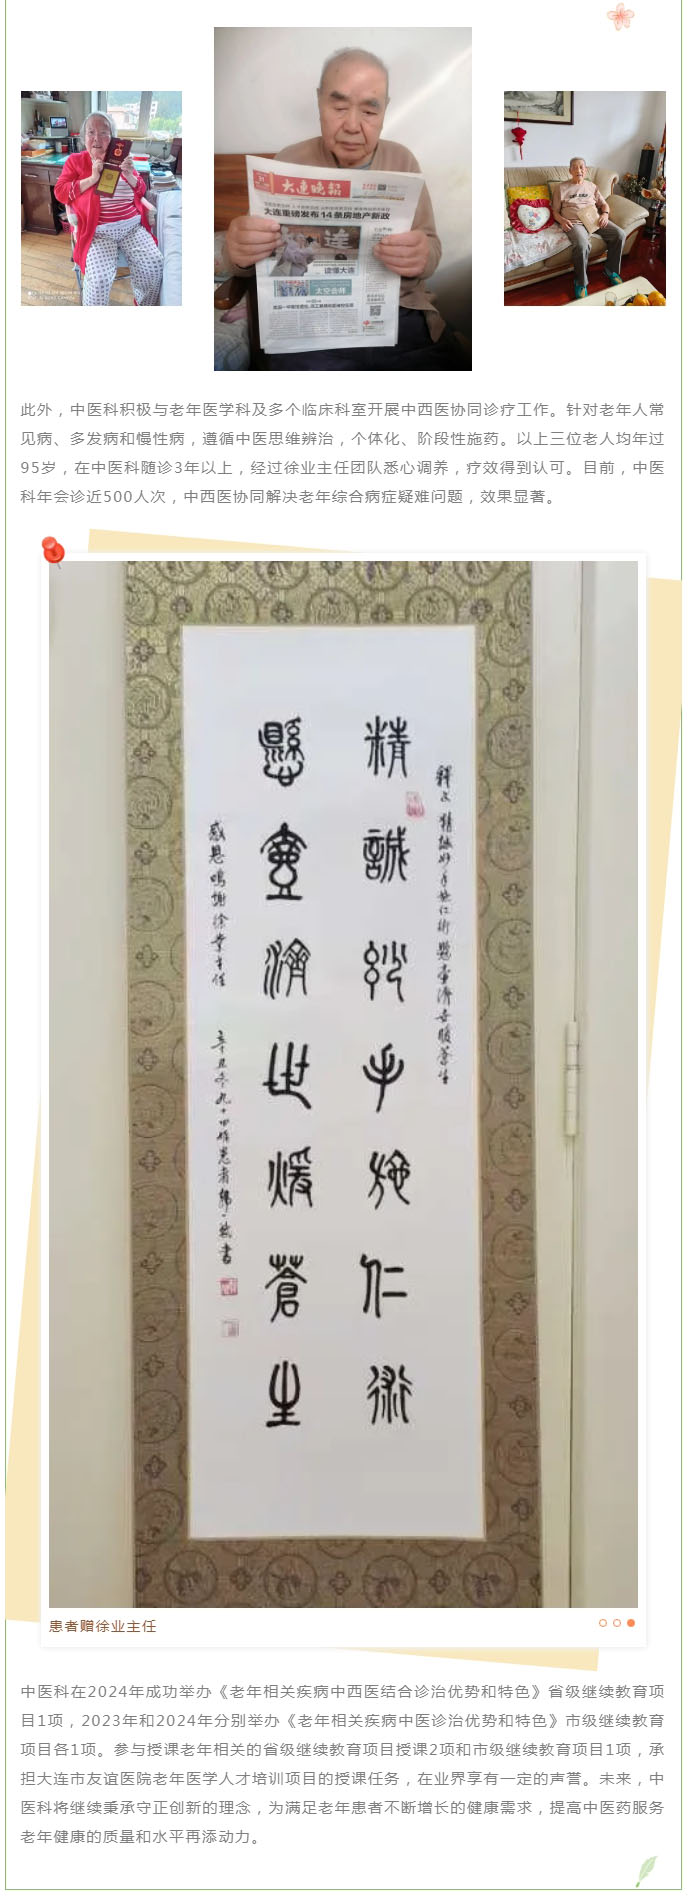 大连晚报
大连重磅发布14条房地产新政
读懂大连
太空会师
此外，中医科积极与老年医学科及多个临床科室开展中西医协同诊疗工作。针对老年人常
见病、多发病和慢性病，遵循中医思维辨治，个体化、阶段性施药。以上三位老人均年过
95岁，在中医科随诊3年以上，经过徐业主任团队悉心调养，疗效得到认可。目前，中医
科年会诊近500人次，中西医协同解决老年综合病症疑难问题，效果显著。
釋文 精誠妙手施仁術 懸壺濟世暖蒼生
精誠妙手施仁術
懸壺濟世煖蒼生
感恩鳴謝徐業主任
患者赠徐业主任
中医科在2024年成功举办《老年相关疾病中西医结合诊治优势和特色》省级继续教育项
目1项，2023年和2024年分别举办《老年相关疾病中医诊治优势和特色》市级继续教育
项目各1项。参与授课老年相关的省级继续教育项目授课2项和市级继续教育项目1项，承
担大连市友谊医院老年医学人才培训项目的授课任务，在业界享有一定的声誉。未来，中
医科将继续秉承守正创新的理念，为满足老年患者不断增长的健康需求，提高中医药服务
老年健康的质量和水平再添动力。